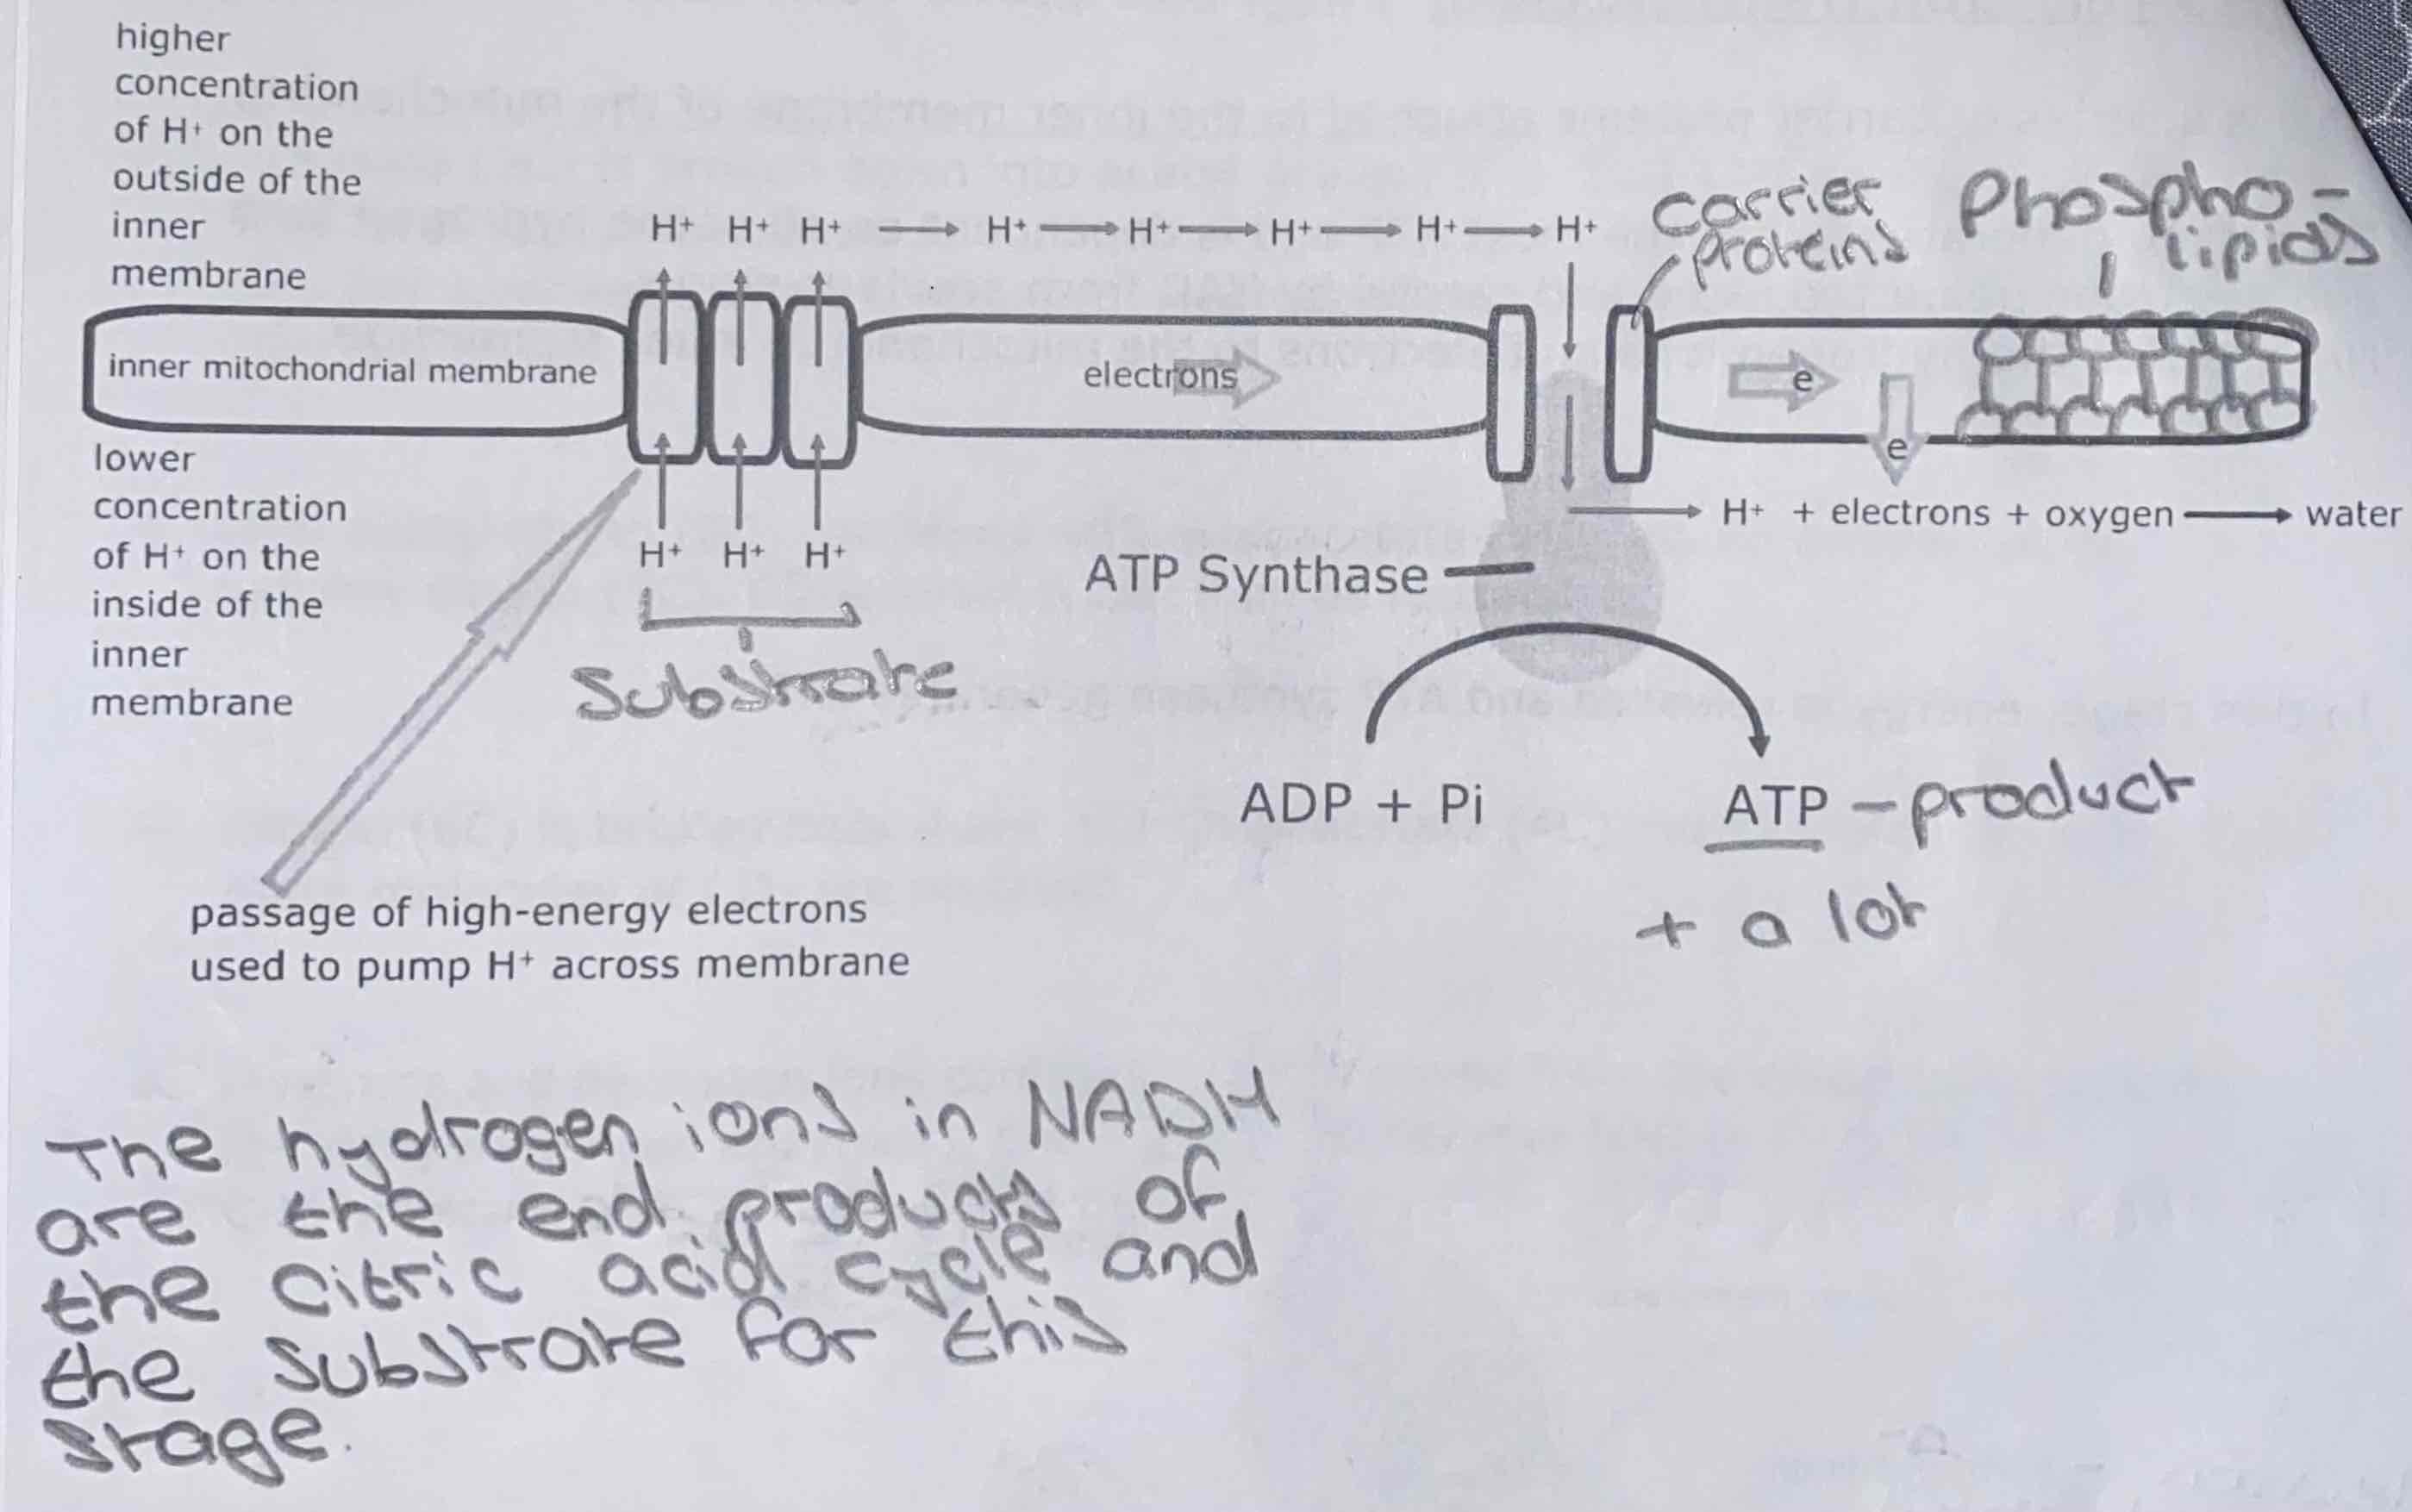 higher
concentration
of H⁺ on the
outside of the
inner
membrane
H⁺ H⁺ H⁺ → H⁺ → H⁺ → H⁺ → H⁺ → H⁺
carrier
proteins
Phospho-
lipids
inner mitochondrial membrane
electrons
e
e
lower
concentration
of H⁺ on the
inside of the
inner
membrane
H⁺ H⁺ H⁺
Substrate
H⁺ + electrons + oxygen → water
ATP Synthase
ADP + Pi
ATP - product
+ a lot
passage of high-energy electrons
used to pump H⁺ across membrane
The hydrogen ions in NADH
are the end products of
the citric acid cycle and
the substrate for this
stage.